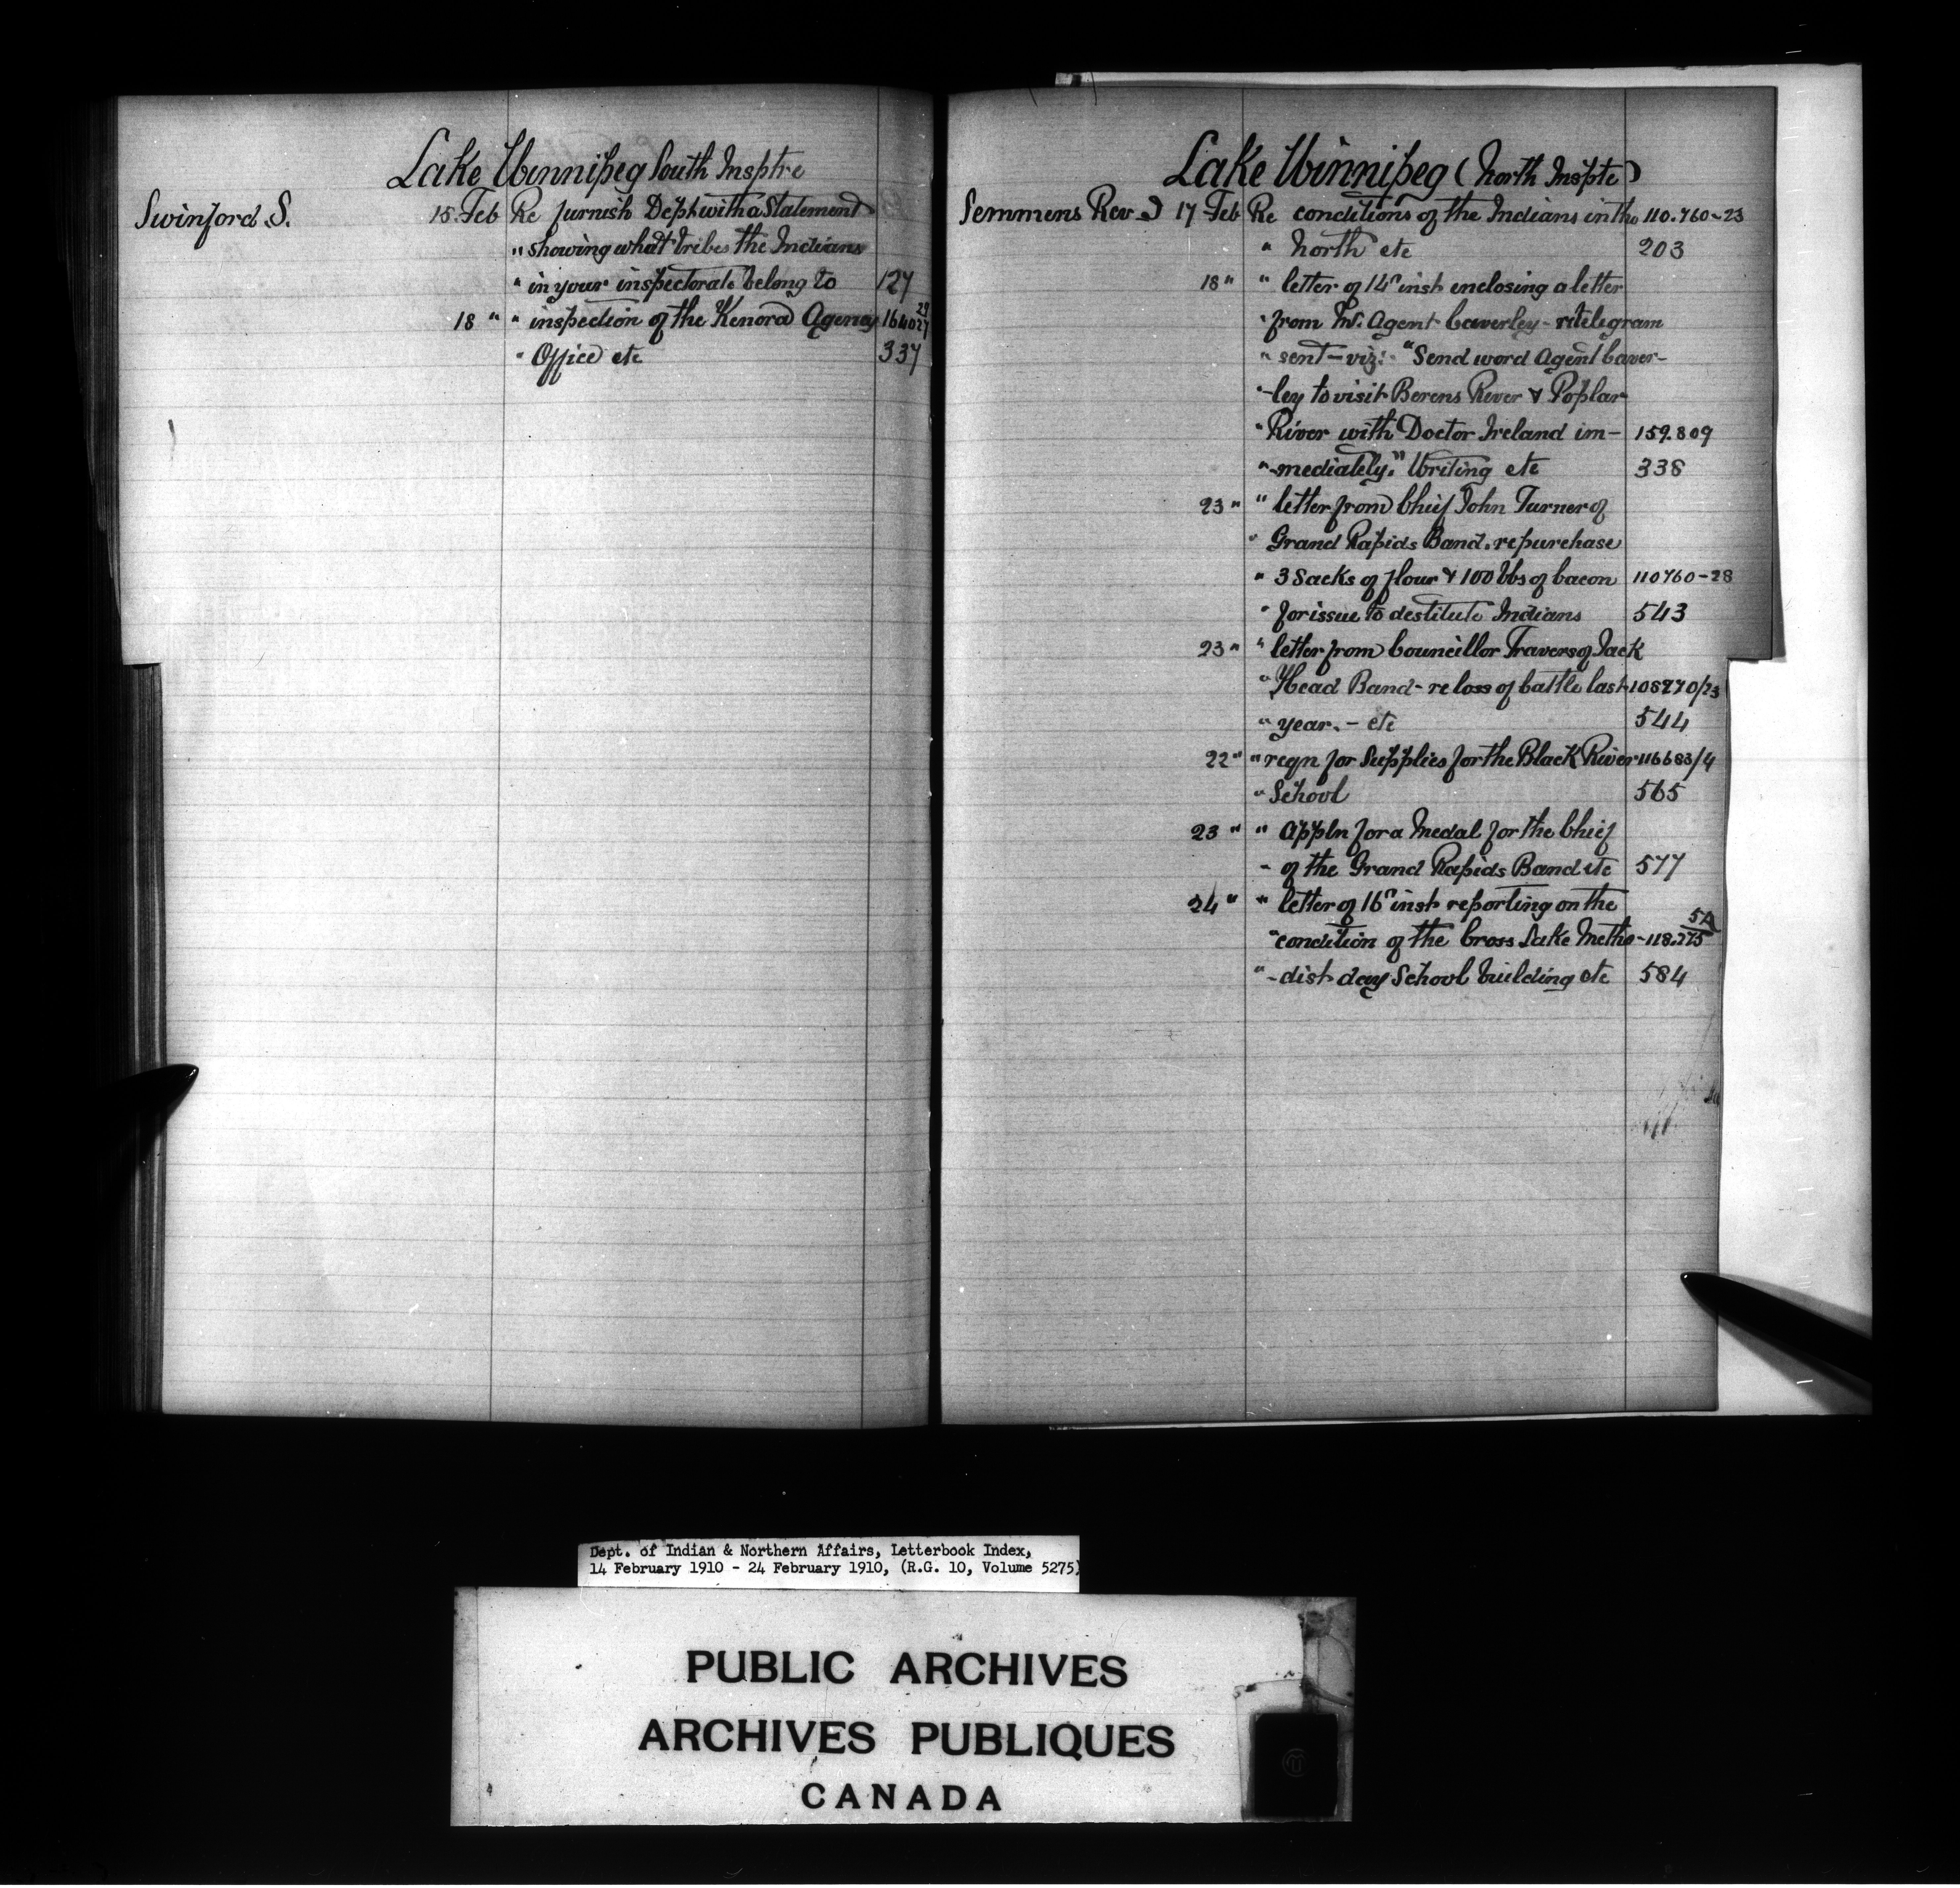 Lake Winnipeg South Insptre
Swinford S. 15 Feb Re furnish Dept with a Statement
" showing what tribes the Indians
" in your inspectorate belong to 127
18 " " inspection of the Kenora Agency 164027
" Office etc 337
Lake Winnipeg (North Inspte)
Semmens Rev. J 17 Feb Re conditions of the Indians in the 110.760-23
" North etc 203
18 " " letter of 14" inst enclosing a letter
" from In. Agent Caverley - re telegram
" sent - viz: - "Send word Agent Caver-
" -ley to visit Berens River & Poplar
" River with Doctor Ireland im- 159.809
" -mediately." Writing etc 338
23 " " letter from Chief John Turner of
" Grand Rapids Band. re purchase
" 3 Sacks of flour & 100 lbs of bacon 110760-28
" for issue to destitute Indians 543
23 " " letter from Councillor Travers of Jack
" Head Band - re loss of cattle last 108270/23
" year. - etc 544
22 " " reqn for Supplies for the Black River 116683/4
" School 565
23 " " Appln for a Medal for the Chief
" of the Grand Rapids Band etc 577
24 " " letter of 16" inst reporting on the
" condition of the Cross Lake Metho- 118.275
" -dist day School building etc 584
Dept. of Indian & Northern Affairs, Letterbook Index,
14 February 1910 - 24 February 1910, (R.G. 10, Volume 5275)
PUBLIC ARCHIVES
ARCHIVES PUBLIQUES
CANADA